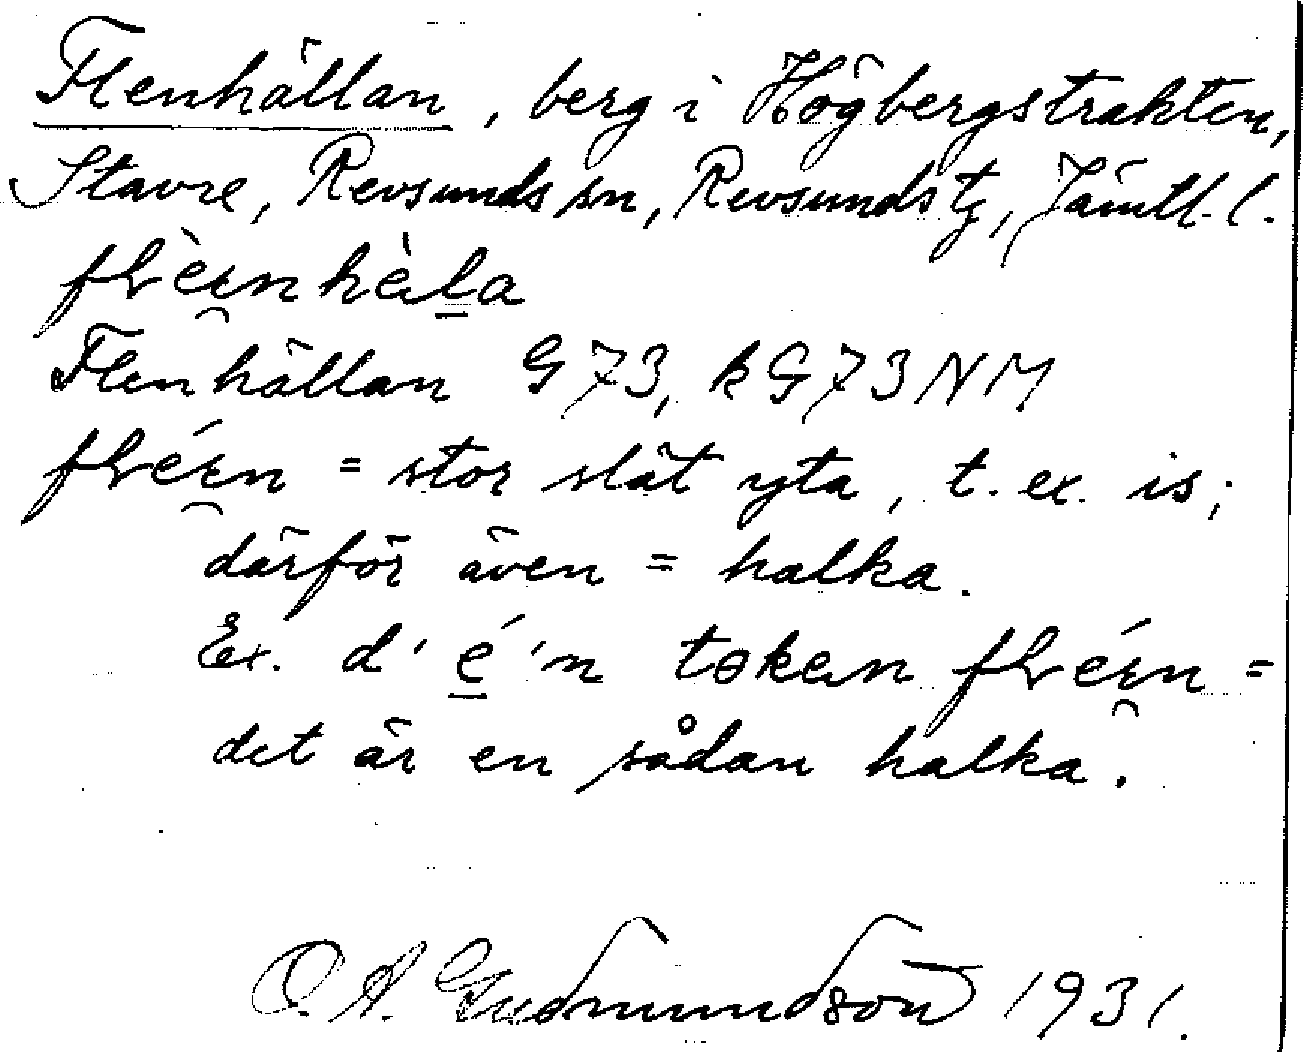 Flenhällan, berg i Högbergstrakten,
Stavre, Revsunds sn, Revsunds tg, Jämtl. l.
Flenhällan G 73, k G 73 NM
= stor slät yta, t. ex. is;
därför även = halka.
Ex. d' é 'n =
det är en sådan halka.
O. A. Gudmundson 1931.